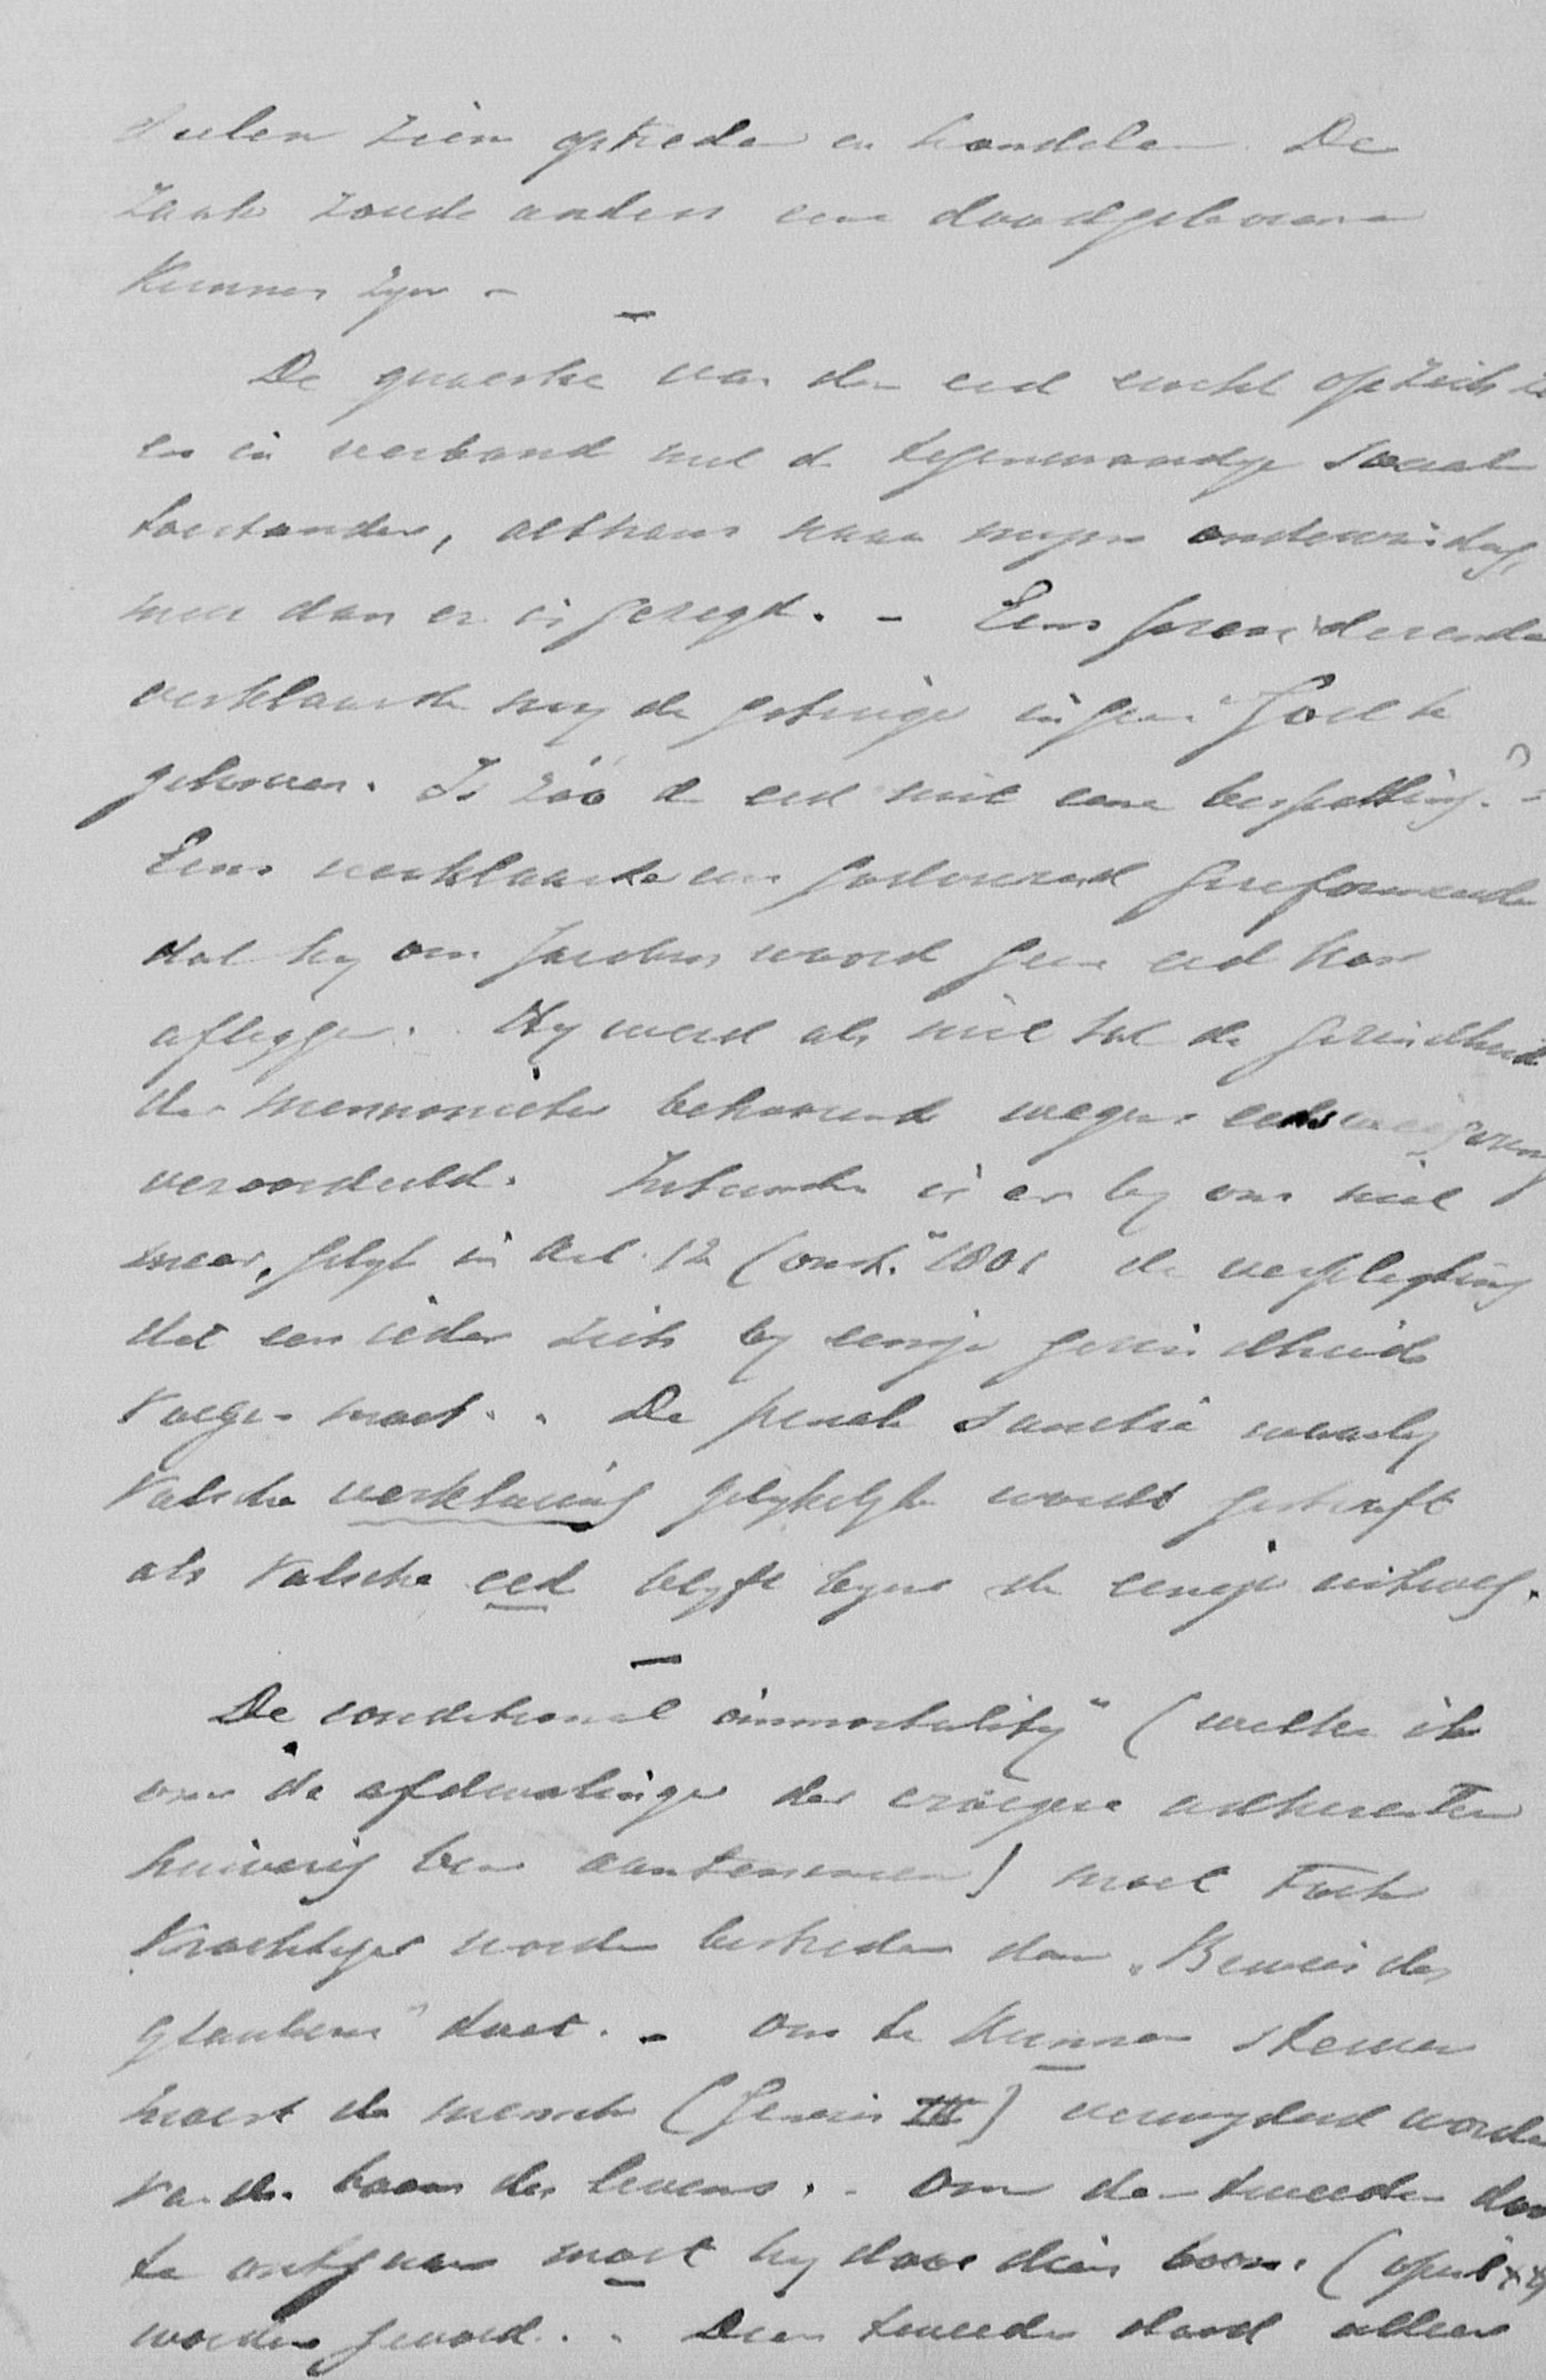 zien optreden en handelen. De
zaak zoude anders eene doodgeborene
kunnen zyn –
De quaestie van den eed eischt op zich
en in verband met de tegenwoordige sociale
toestanden, althans naar myne ondervinding,
meer dan er is gezegd. – Eens
verklaarde my de getuige in geen God te
gelooven. Is zóó de eed niet eene bespotting? –
Eens verklaarde een godvreezend gereformeerde
dat hy om Jacobus woord geen eed kon
afleggen. Hy werd als niet tot de gezindheid
der mennonieten behoorend wegens eedsweigering
veroordeeld. Intusschen is er by ons niet
meer, gelyk in Art. 12 Const. 1801 de verpligting
dat een ieder zich by eenige gezindheid
voegen moet. – De penale sanctie waarby
valsche verklaring gelykelyk wordt gestraft
als valsche eed blyft tegens de eenige uitweg.
De conditional immortality" (welke ik
om de afdwalingen der vroegere adherenten
huiverig ben aantenemen) moet toch
krachtiger worden bestreden dan "Beweis des
Glaubens" doet. – Om te kunnen sterven
moest de mensch (Genesis III) verwyderd worden
van den boom des levens. – Om den tweeden
te ontgaan moet hy door dien boom (
worden gevoed. – Deze tweede dood alleen